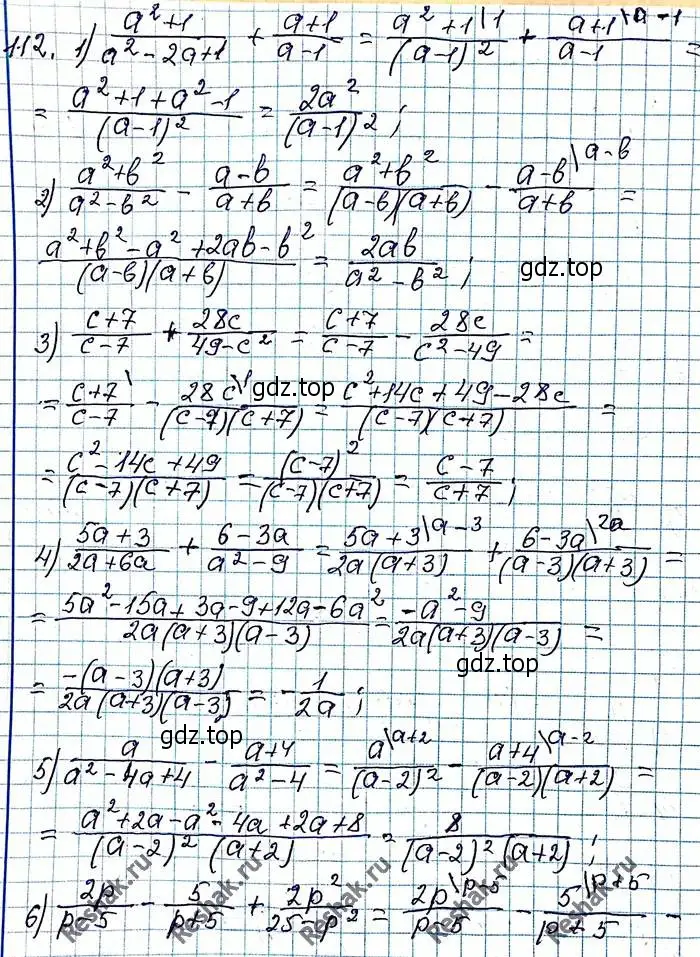 112. 1) (a²+1)/(a²-2a+1) + (a+1)/(a-1) = (a²+1\1)/(a-1)² + (a+1\a-1)/(a-1) =
= (a²+1+a²-1)/(a-1)² = 2a²/(a-1)²;
2) (a²+b²)/(a²-b²) - (a-b)/(a+b) = (a²+b²)/((a-b)(a+b)) - (a-b\a-b)/(a+b) =
(a²+b²-a²+2ab-b²)/((a-b)(a+b)) = 2ab/(a²-b²);
gdz.top
3) (c+7)/(c-7) + 28c/(49-c²) = (c+7)/(c-7) - 28c/(c²-49) =
= (c+7\)/(c-7) - (28c\1)/((c-7)(c+7)) = (c²+14c+49-28c)/((c-7)(c+7)) =
gdz.top
= (c²-14c+49)/((c-7)(c+7)) = (c-7)²/((c-7)(c+7)) = (c-7)/(c+7);
4) (5a+3)/(2a+6a) + (6-3a)/(a²-9) = (5a+3\a-3)/(2a(a+3)) + (6-3a\2a)/((a-3)(a+3)) =
= (5a²-15a+3a-9+12a-6a²)/(2a(a+3)(a-3)) = (-a²-9)/(2a(a+3)(a-3)) =
gdz.top
= (-(a-3)(a+3))/(2a(a+3)(a-3)) = -1/(2a);
gdz.top
5) a/(a²-4a+4) - (a+4)/(a²-4) = (a\a+2)/(a-2)² - (a+4\a-2)/((a-2)(a+2)) =
= (a²+2a-a²-4a+2a+8)/((a-2)²(a+2)) = 8/((a-2)²(a+2));
6) 2p/(p-5) - 5/(p+5) + 2p²/(25-p²) = (2p\p+5)/(p-5) - (5\p+5)/(p+5) -
Reshak.ru
Reshak.ru
Reshak.ru
Reshak.ru
Reshak.ru